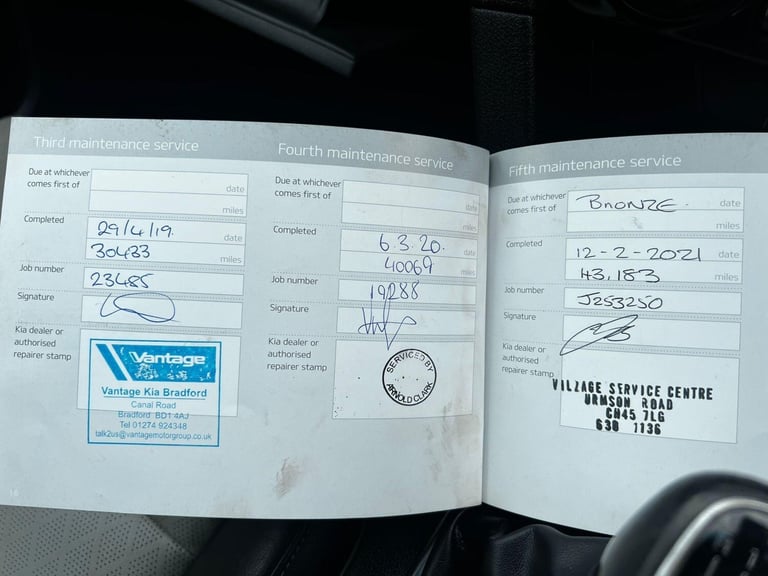 Third maintenance service
Due at whichever
comes first of
date
miles
Completed
29/4/19.
date
30433
miles
Job number
23485
Signature
Kia dealer or
authorised
repairer stamp
Vantage
Vantage Kia Bradford
Canal Road
Bradford BD1 4AJ
Tel 01274 924348
talk2us@vantagemotorgroup.co.uk
Fourth maintenance service
Due at whichever
comes first of
date
miles
Completed
6.3.20.
date
40069
miles
Job number
19288
Signature
Kia dealer or
authorised
repairer stamp
SERVICED BY
ARNOLD CLARK
Fifth maintenance service
Due at whichever
comes first of
BRONZE.
date
miles
Completed
12-2-2021
date
43,183
miles
Job number
J253250
Signature
Kia dealer or
authorised
repairer stamp
VILLAGE SERVICE CENTRE
URMSON ROAD
CH45 7LG
630 1136